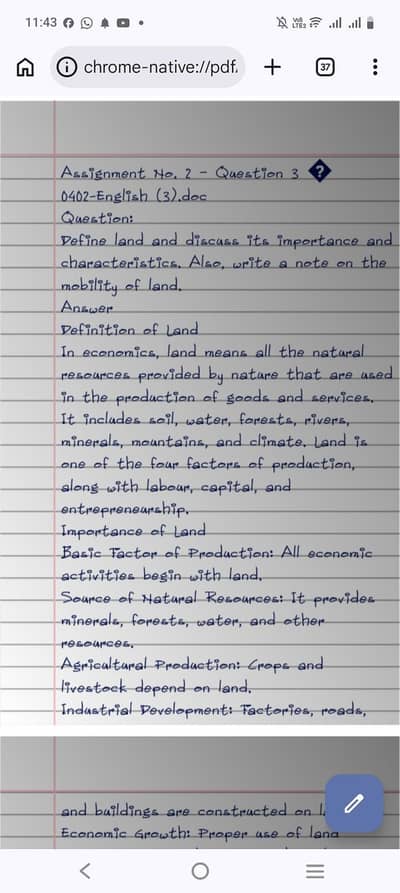 11:43
VoI LTE2
chrome-native://pdf.
37
Assignment No. 2 - Question 3 ?
0402-English (3).doc
Question:
Define land and discuss its importance and
characteristics. Also, write a note on the
mobility of land.
Answer
Definition of Land
In economics, land means all the natural
resources provided by nature that are used
in the production of goods and services.
It includes soil, water, forests, rivers,
minerals, mountains, and climate. Land is
one of the four factors of production,
along with labour, capital, and
entrepreneurship.
Importance of Land
Basic Factor of Production: All economic
activities begin with land.
Source of Natural Resources: It provides
minerals, forests, water, and other
resources.
Agricultural Production: Crops and
livestock depend on land.
Industrial Development: Factories, roads,
and buildings are constructed on
Economic Growth: Proper use of land